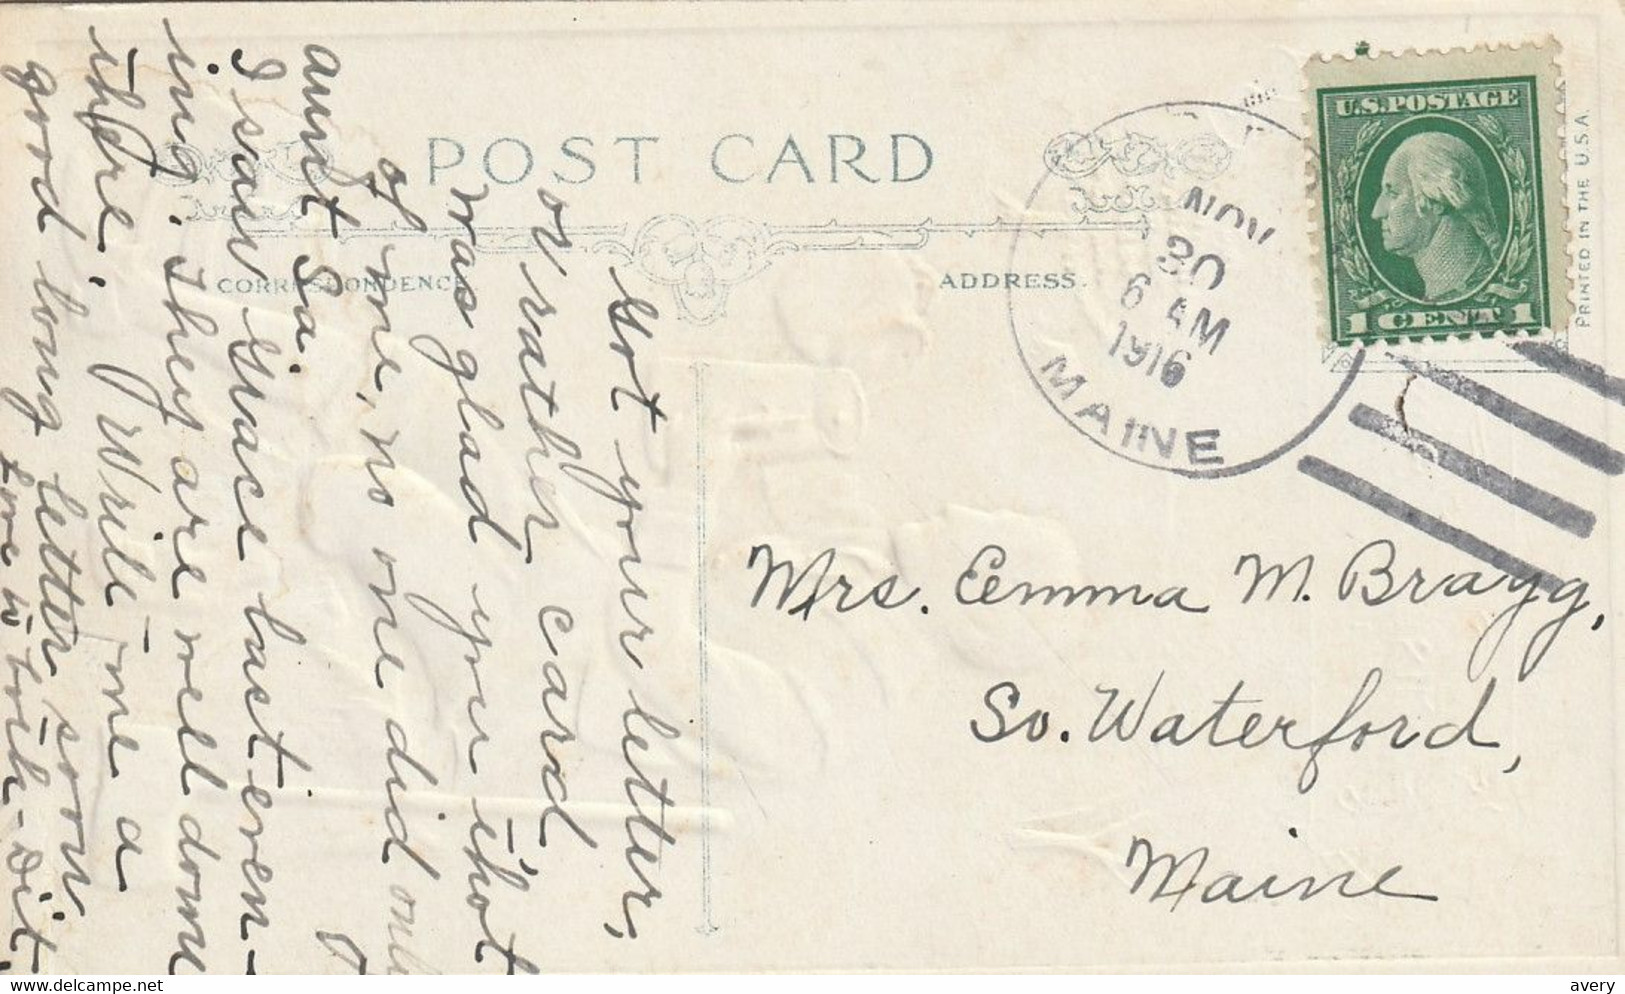 POST CARD
CORRESPONDENCE
ADDRESS.
U.S.POSTAGE
1 CENT 1
PRINTED IN THE U.S.A.
NOV
30
6 AM
1916
MAINE
Got your letter,
or rather card
was glad you thot
of me, no one did only
aunt Sa.
I saw Grace last even-
ing. They are well down
there. Write me a
good long letter soon
Love to both - Dit.
Mrs. Emma M. Bragg,
So. Waterford,
Maine
delcampe.net
avery